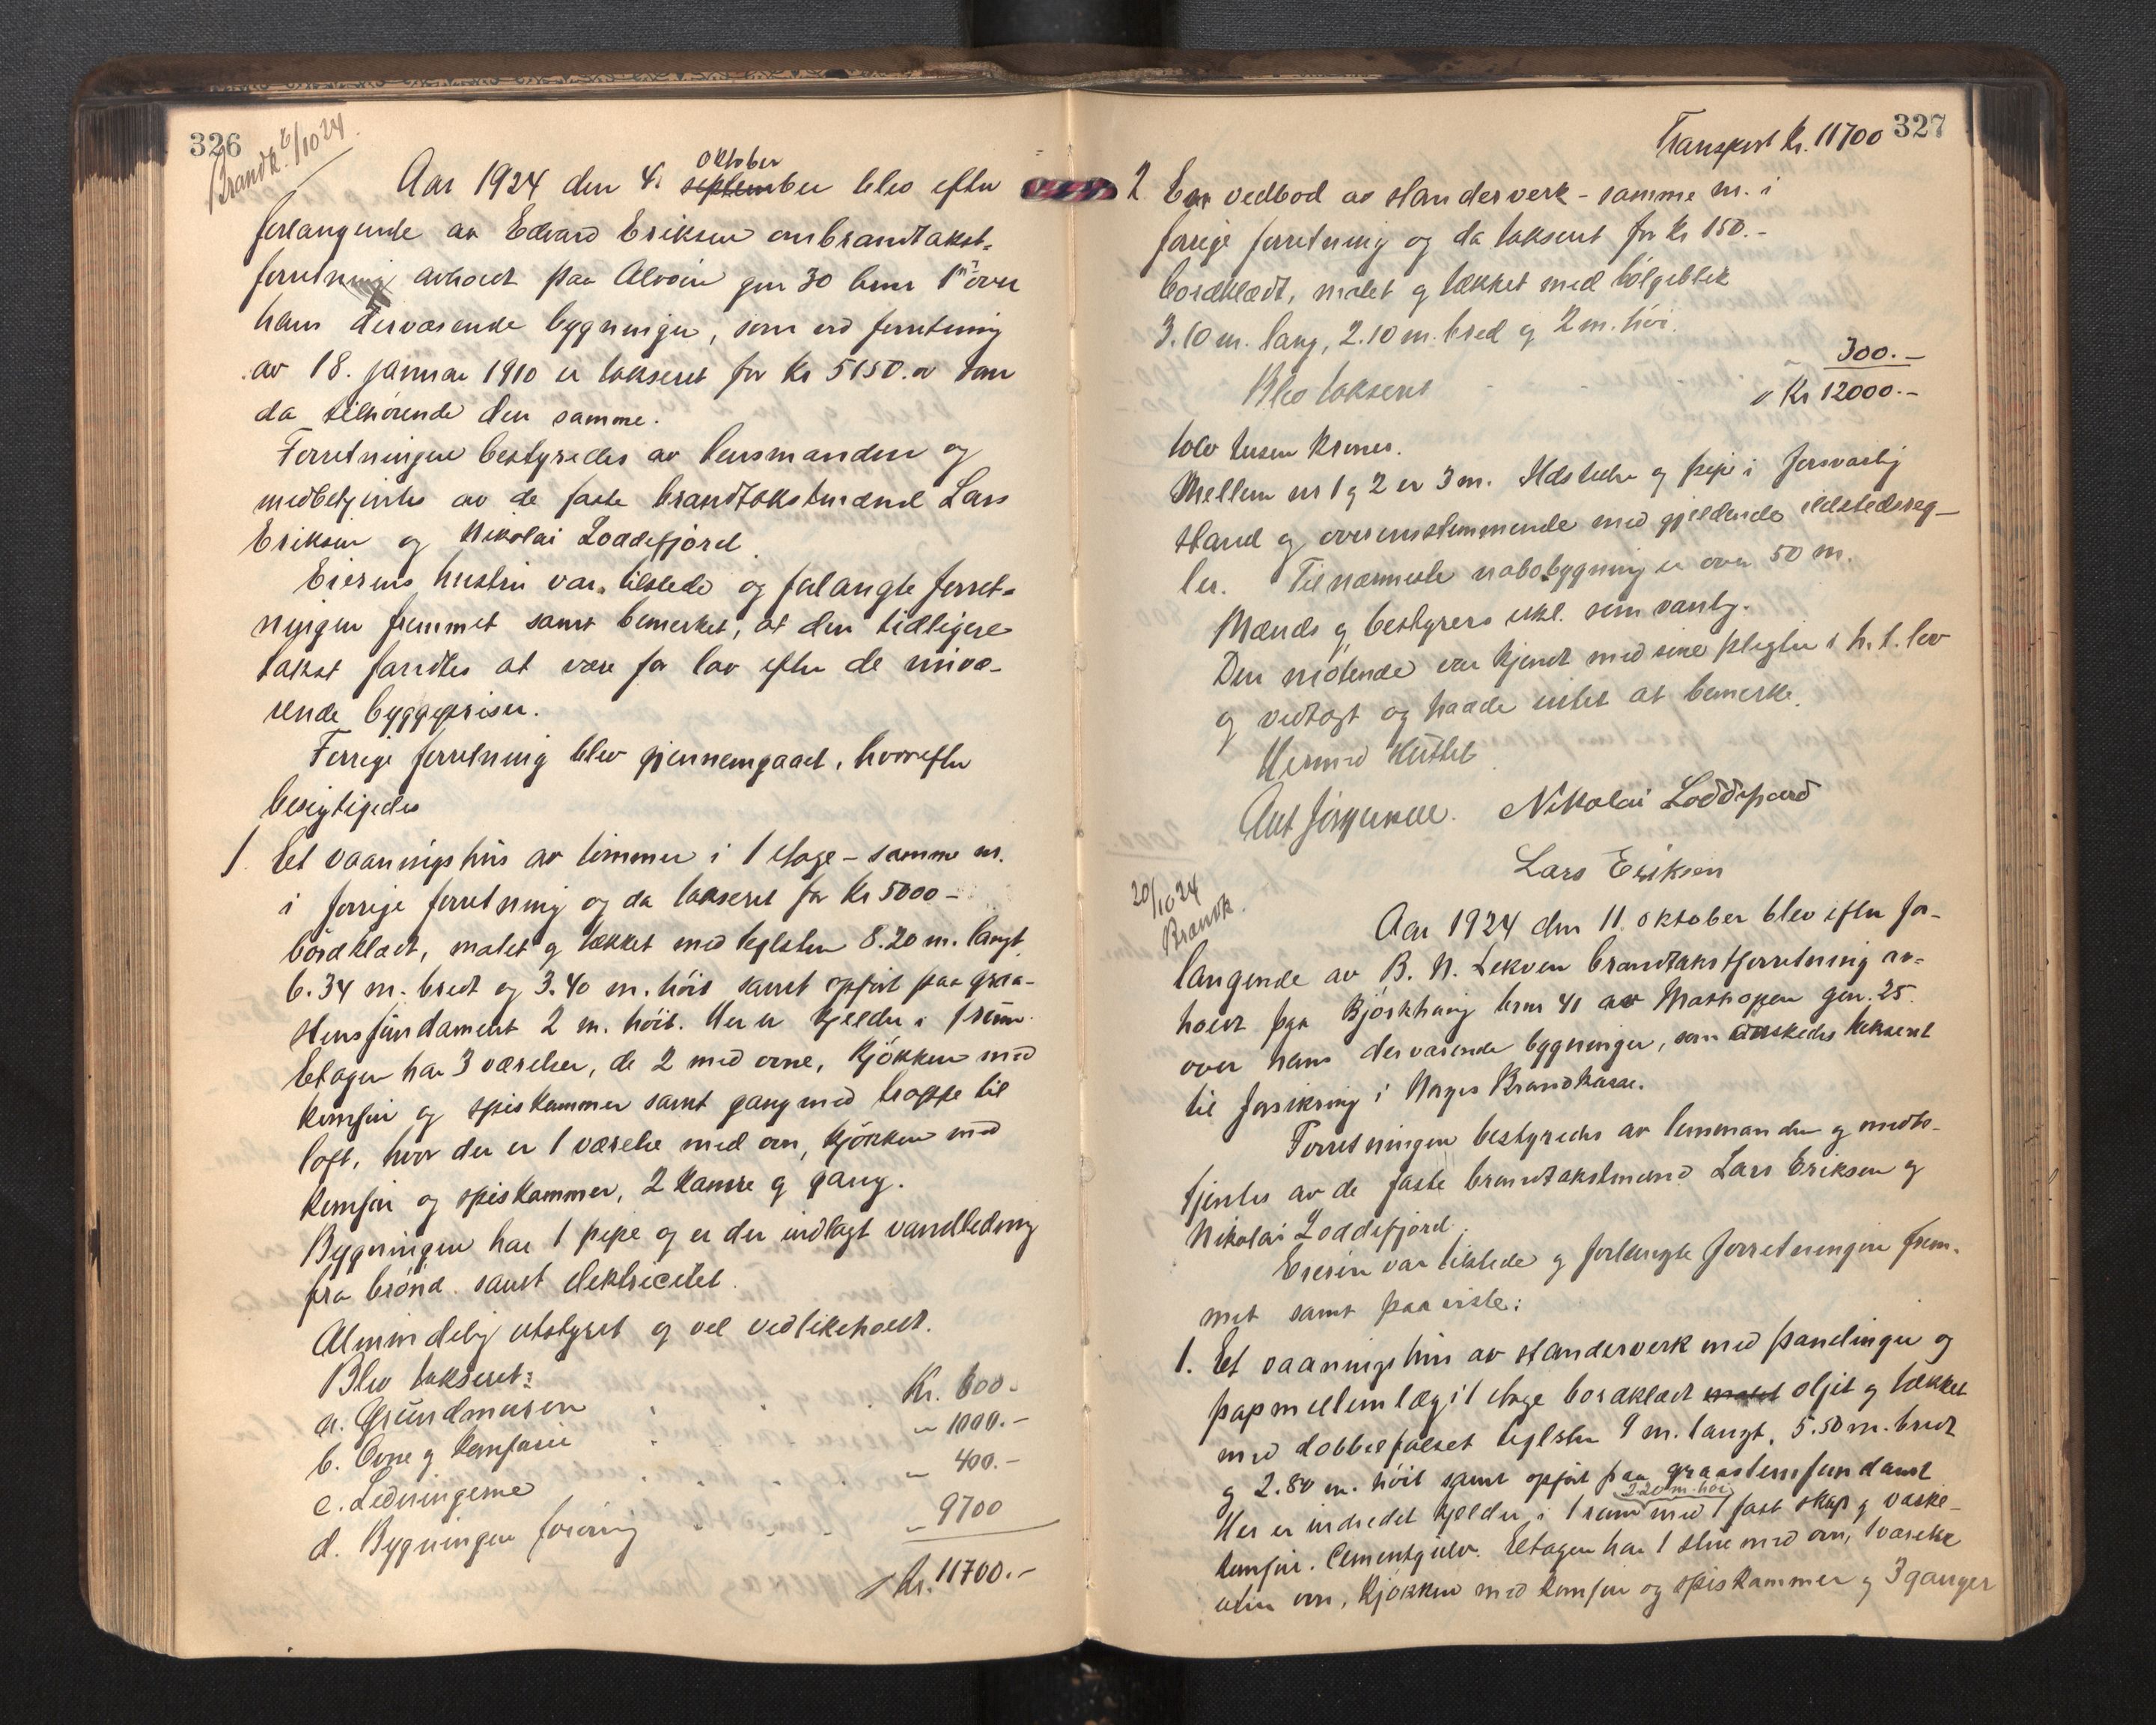 326
Brandk. 6/10 24
Aar 1924 den 4. september oktober blev efter
forlangende av Edvard Eriksen ombrandtakst-
forretning avholdt paa Alvøen gnr 30 brnr 1 over
hans derværende bygninger, som ved forretning
av 18. januar 1910 er takseret for Kr 5150.
da tilhørende den samme.
Forretningen bestyredes av lensmanden og
medbetjentes av de faste brandtakstmænd Lars
Eriksen og Nikolai Loddefjord.
Eierens hustru var tilstede og forlangte forret-
ningen fremmet samt bemerket, at den tidligere
takst fandtes at være for lav efter de nuvæ-
rende byggepriser.
Forrige forretning blev gjennemgaaet, hvorefter
besigtigedes
1. Et vaaningshus av tømmer i 1 etage – samme nr.
i forrige forretning og da takseret for Kr 5000 –
bordklædt, malet og tækket med teglsten 8.20 m. langt
6.34 m. bredt og 3.40 m. høit samt opført paa graa-
stensfundament 2 m. høit. Her er kjelder i 1 rum.
Etagen har 3 værelser, de 2 med ovne, kjøkken med
komfur og spiskammer samt gang med trappe til
loft, hvor der er 1 værelse med ovn, kjøkken med
komfur og spiskammer, 2 kamre og gang.
Bygningen har 1 pipe og er der indlagt vandledning
fra brønd samt elektricitet.
Almindelig utstyret og vel vedlikeholdt.
Blev takseret:
a. Grundmuren Kr. 600.-
b. Ovne og komfurer " 1000.-
c. Ledningerne " 400.-
d. Bygningen forøvrig " 9700
Kr. 11700.-
327
Transport Kr. 11700
2. En vedbod av standerverk – samme nr. i
forrige forretning og da takseret for Kr 150.-
bordklædt, malet og tækket med bølgeblik
3.10 m. lang, 2.10 m. bred og 2 m. høi.
Blev takseret 300.-
Kr 12000.-
tolv tusen kroner.
Mellem nr 1 og 2 er 3 m. Ildsteder og pipe i forsvarlig
stand og overensstemmende med gjeldende ildstedsreg-
ler. Til nærmeste nabobygning er over 50 m.
Mænds og bestyrers erkl. som vanlig.
Den møtende var kjendt med sine pligter i h. t. lov
og vedtægt og hadde intet at bemerke.
Hermed sluttet
Ant Jørgensen. Nikolai Loddefjord
Lars Eriksen
20/10 24
Brandk.
Aar 1924 den 11. oktober blev efter for-
langende av B. N. Lekven brandtakstforretning av-
holdt paa Bjørkhaug brnr 41 av Mathopen gnr. 25.
over hans derværende bygninger, som ønskedes takseret
til forsikring i Norges Brandkasse.
Forretningen bestyredes av lensmanden og medbe-
tjentes av de faste brandtakstmænd Lars Eriksen og
Nikolai Loddefjord.
Eieren var tilstede og forlangte forretningen frem-
met samt paaviste:
1. Et vaaningshus av standerverk med panelinger og
papmellemlæg i 1 etage bordklædt malet oljet og tækket
med dobbelfalset teglsten 9 m. langt, 5.50 m. bredt
og 2.80 m. høit samt opført paa graastensfundament
2.20 m. høi
Her er indredet kjelder i 1 rum med 1 fast skap og vaske-
komfur. Cementgulv. Etagen har 1 stue med ovn, 1 værelse
uten ovn, kjøkken med komfur og spiskammer og 3 ganger